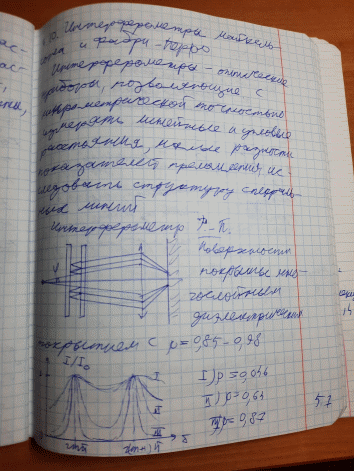 Интерферометры Майкель-
и Фабри-Перо
Интерферометры - оптические
приборы, позволяющие с
интерферометрической точностью
измерять линейные и угловые
расстояния, малые разности
показателей преломления, ис-
следовать структуру спектраль-
ных линий
Интерферометр Ф.-П.
Поверхности
покрыты мно-
гослойным
диэлектрическим
покрытием с ρ = 0,85-0,98
I/I₀
I
II
III
I) ρ = 0,046
II) ρ = 0,64
III) ρ = 0,87
57
2πm
2(m+1)π
δ